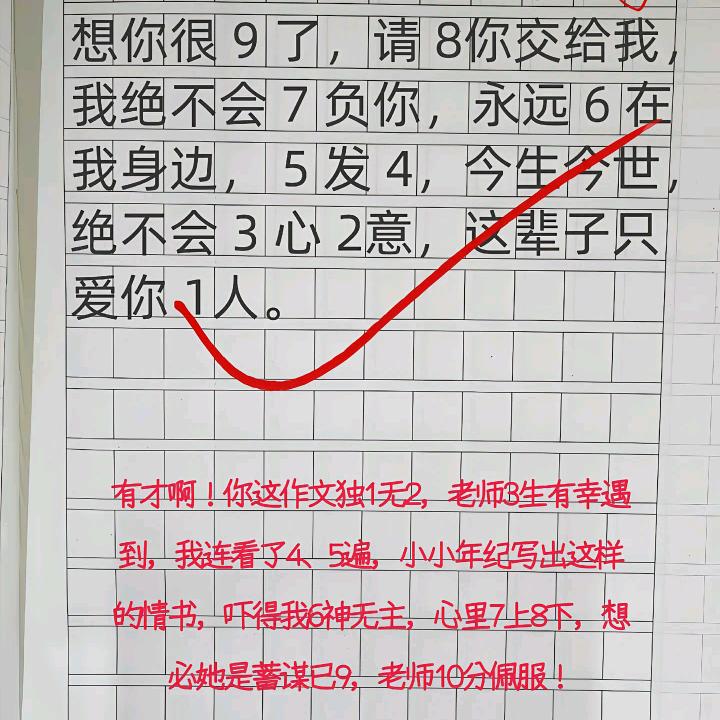 想你很9了，请8你交给我，
我绝不会7负你，永远6在
我身边，5发4，今生今世，
绝不会3心2意，这辈子只
爱你1人。
有才啊！你这作文独1无2，老师3生有幸遇
到，我连看了4、5遍，小小年纪写出这样
的情书，吓得我6神无主，心里7上8下，想
必她是蓄谋已9，老师10分佩服！